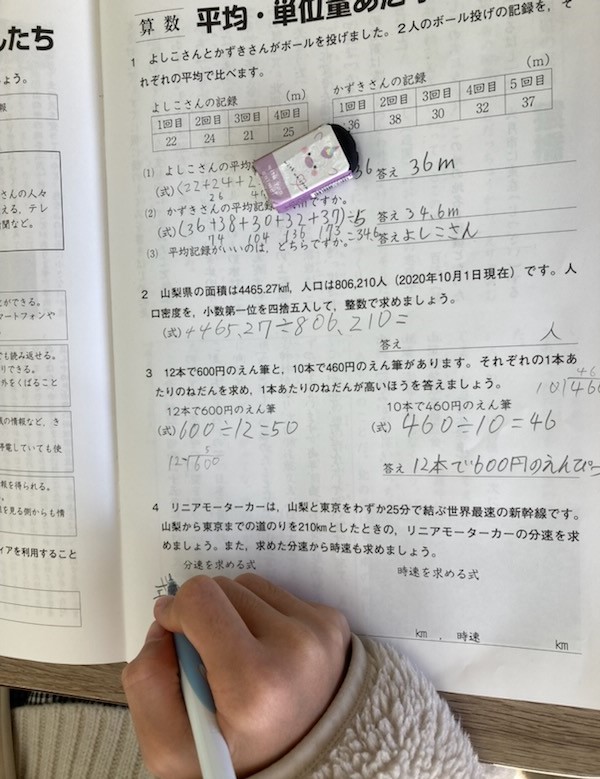 たち
算数 平均・単位量あた
1 よしこさんとかずきさんがボールを投げました。2人のボール投げの記録を，そ
れぞれの平均で比べます。
よしこさんの記録 (m)
1回目 2回目 3回目 4回目
22 24 21 25
かずきさんの記録 (m)
1回目 2回目 3回目 4回目 5回目
36 38 30 32 37
(1) よしこさんの平均
(式)(22+24+2
答え 36m
(2) かずきさんの平均記録 ですか。
(式)(36+38+30+32+37)÷5
74 104 136 173 =34.6
答え 34.6m
(3) 平均記録がいいのは，どちらですか。
答え よしこさん
2 山梨県の面積は4465.27㎢，人口は806,210人（2020年10月1日現在）です。人
口密度を，小数第一位を四捨五入して，整数で求めましょう。
(式) 4465.27÷806,210=
答え 人
3 12本で600円のえん筆と，10本で460円のえん筆があります。それぞれの1本あ
たりのねだんを求め，1本あたりのねだんが高いほうを答えましょう。
12本で600円のえん筆
(式) 600÷12=50
5
12 600
10本で460円のえん筆
(式) 460÷10=46
46
10 460
答え 12本で600円のえんぴつ
4 リニアモーターカーは，山梨と東京をわずか25分で結ぶ世界最速の新幹線です。
山梨から東京までの道のりを210kmとしたときの，リニアモーターカーの分速を求
めましょう。また，求めた分速から時速も求めましょう。
分速を求める式
時速を求める式
km ，時速 km
よう。
報
さんの人々
える，テレ
聞など。
とができる。
マートフォンや
でも読み返せる。
りできる。
外をくばること
員の情報など，き
停電していても使
報を得られる。
を見る側からも情
ィアを利用すること